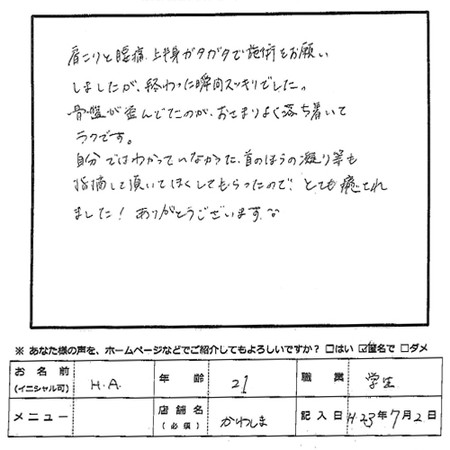 肩こりと腰痛、上半身ガタガタで施術をお願い
しましたが、終わった瞬間スッキリでした。
骨盤が歪んでたのが、おさまりよく落ち着いて
ラクです。
自分ではわかっていなかった、首のほうの凝り等も
指摘して頂いてほぐしてもらったので、とても癒され
ました！ありがとうございます
※ あなた様の声を、ホームページなどでご紹介してもよろしいですか？ □はい ☑匿名で □ダメ
お名前 (イニシャル可) H.A. 年齢 21 職業 学生
メニュー 店舗名 (必須) かわしま 記入日 H23年7月2日